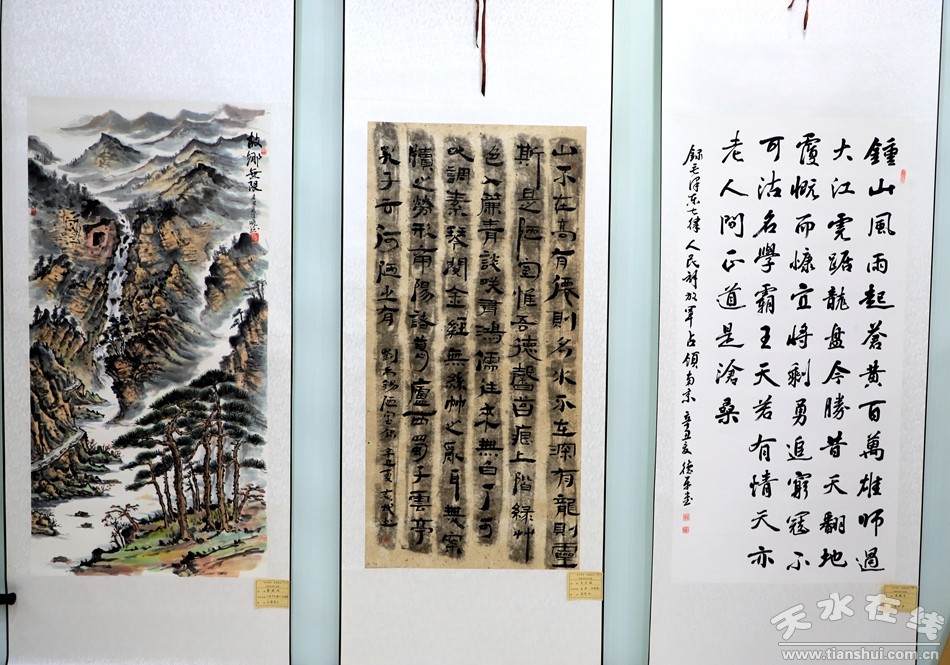 故鄉無限
山不在高有僊則名水不在深有龍則靈
斯是陋室惟吾德馨苔痕上階綠艸
色入簾青談笑有鴻儒往來無白丁可
以調素琴閱金經無絲竹之亂耳無案
牘之勞形南陽諸葛廬西蜀子雲亭
孔子云何陋之有
劉禹錫陋室銘 辛丑夏
鍾山風雨起蒼黃百萬雄師過
大江虎踞龍盤今勝昔天翻地
覆慨而慷宜將剩勇追窮寇不
可沽名學霸王天若有情天亦
老人間正道是滄桑
録毛澤东七律人民解放军占領南京 辛丑夏德
天水在线
www.tianshui.com.cn